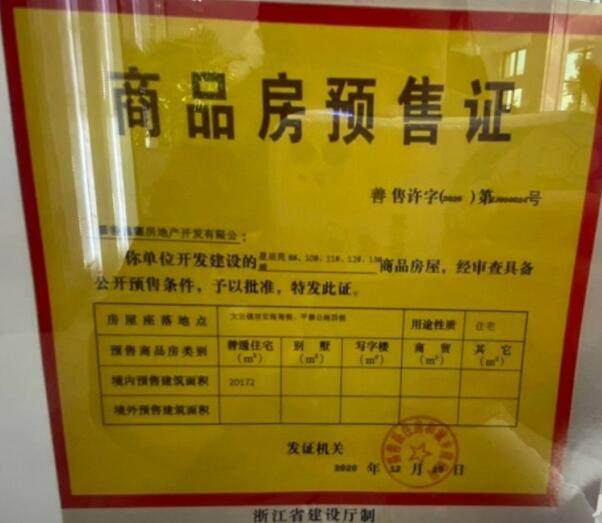 商品房预售证
善售许字(2020)第 号
房地产开发有限公:
你单位开发建设的 8#、10#、11#、12#、13# 商品房屋,经审查具备
公开预售条件,予以批准,特发此证。
房屋座落地点 用途性质 住宅
预售商品房类别 普通住宅(m²) 别墅(m²) 写字楼(m²) 商贸(m²) 其它(m²)
境内预售建筑面积 20172
境外预售建筑面积
发证机关
2020 年 12 月 日
浙江省建设厅制